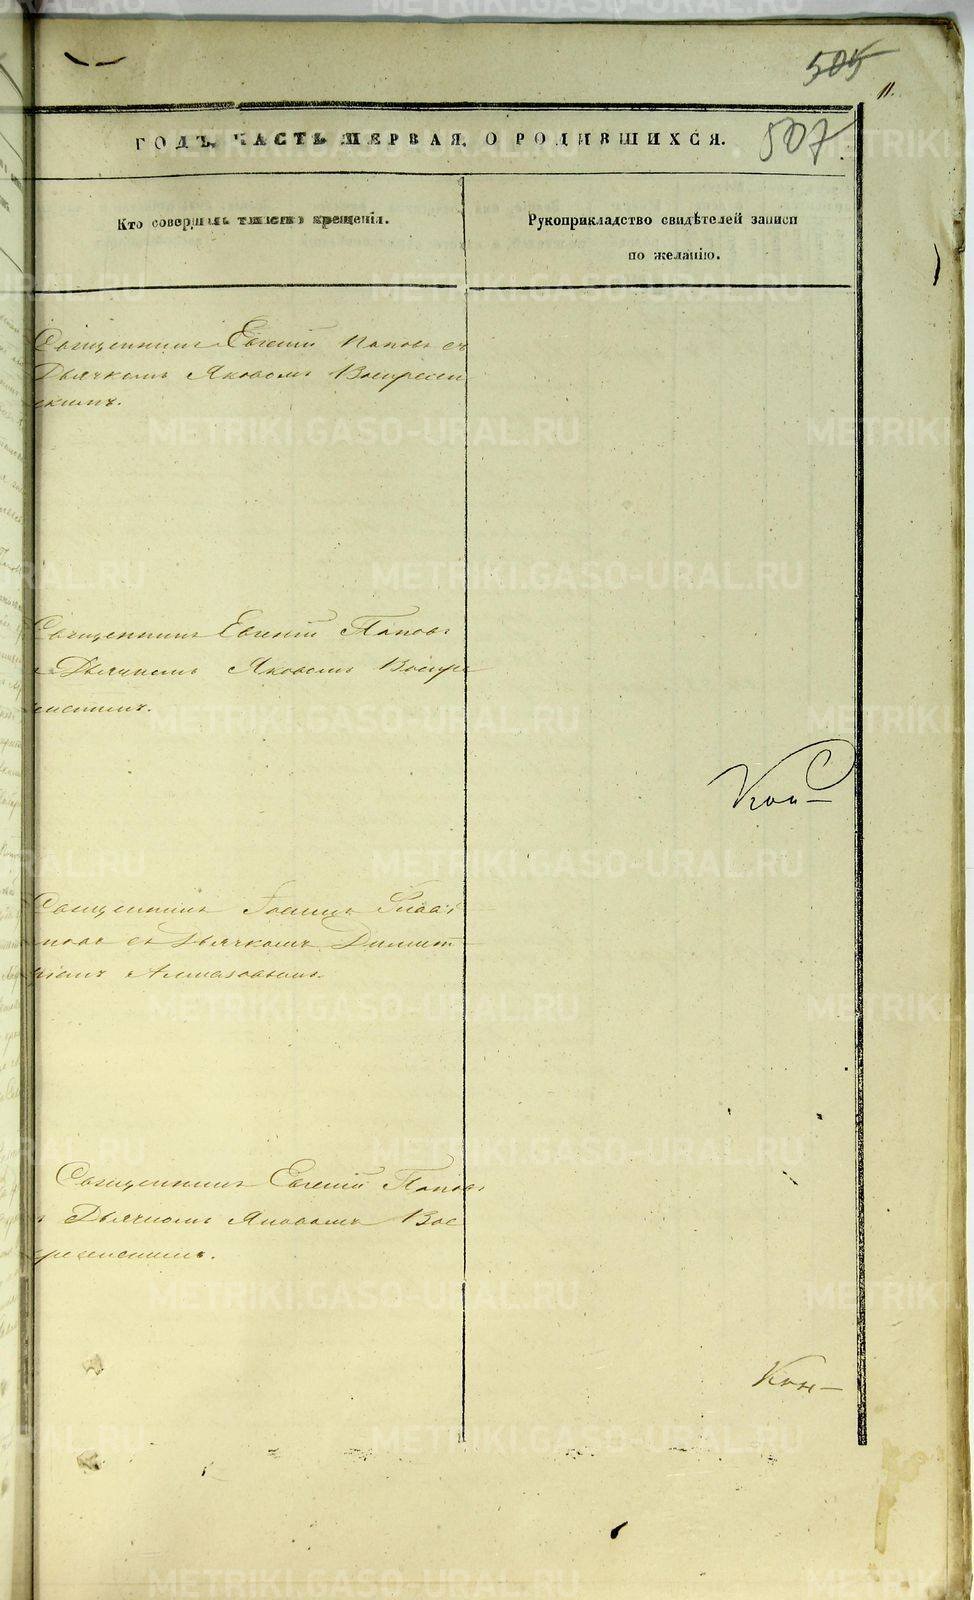 505
11.
507
ГОДЪ, ЧАСТЬ ПЕРВАЯ, О РОДИВШИХСЯ.
Кто совершалъ таинство крещенія.
Рукоприкладство свидѣтелей записи
по желанію.
Священникъ Евгеній Поповъ съ
Дьячкомъ Яковомъ Воскресен
скимъ.
Священникъ Евгеній Поповъ
съ Дьячкомъ Яковомъ Воскре
сенскимъ.
Священникъ Іоаннъ
съ Дьячкомъ Димит
ріемъ Алмазовымъ.
Священникъ Евгеній Поповъ
съ Дьячкомъ Яковомъ Вос
кресенскимъ.
METRIKI.GASO-URAL.RU